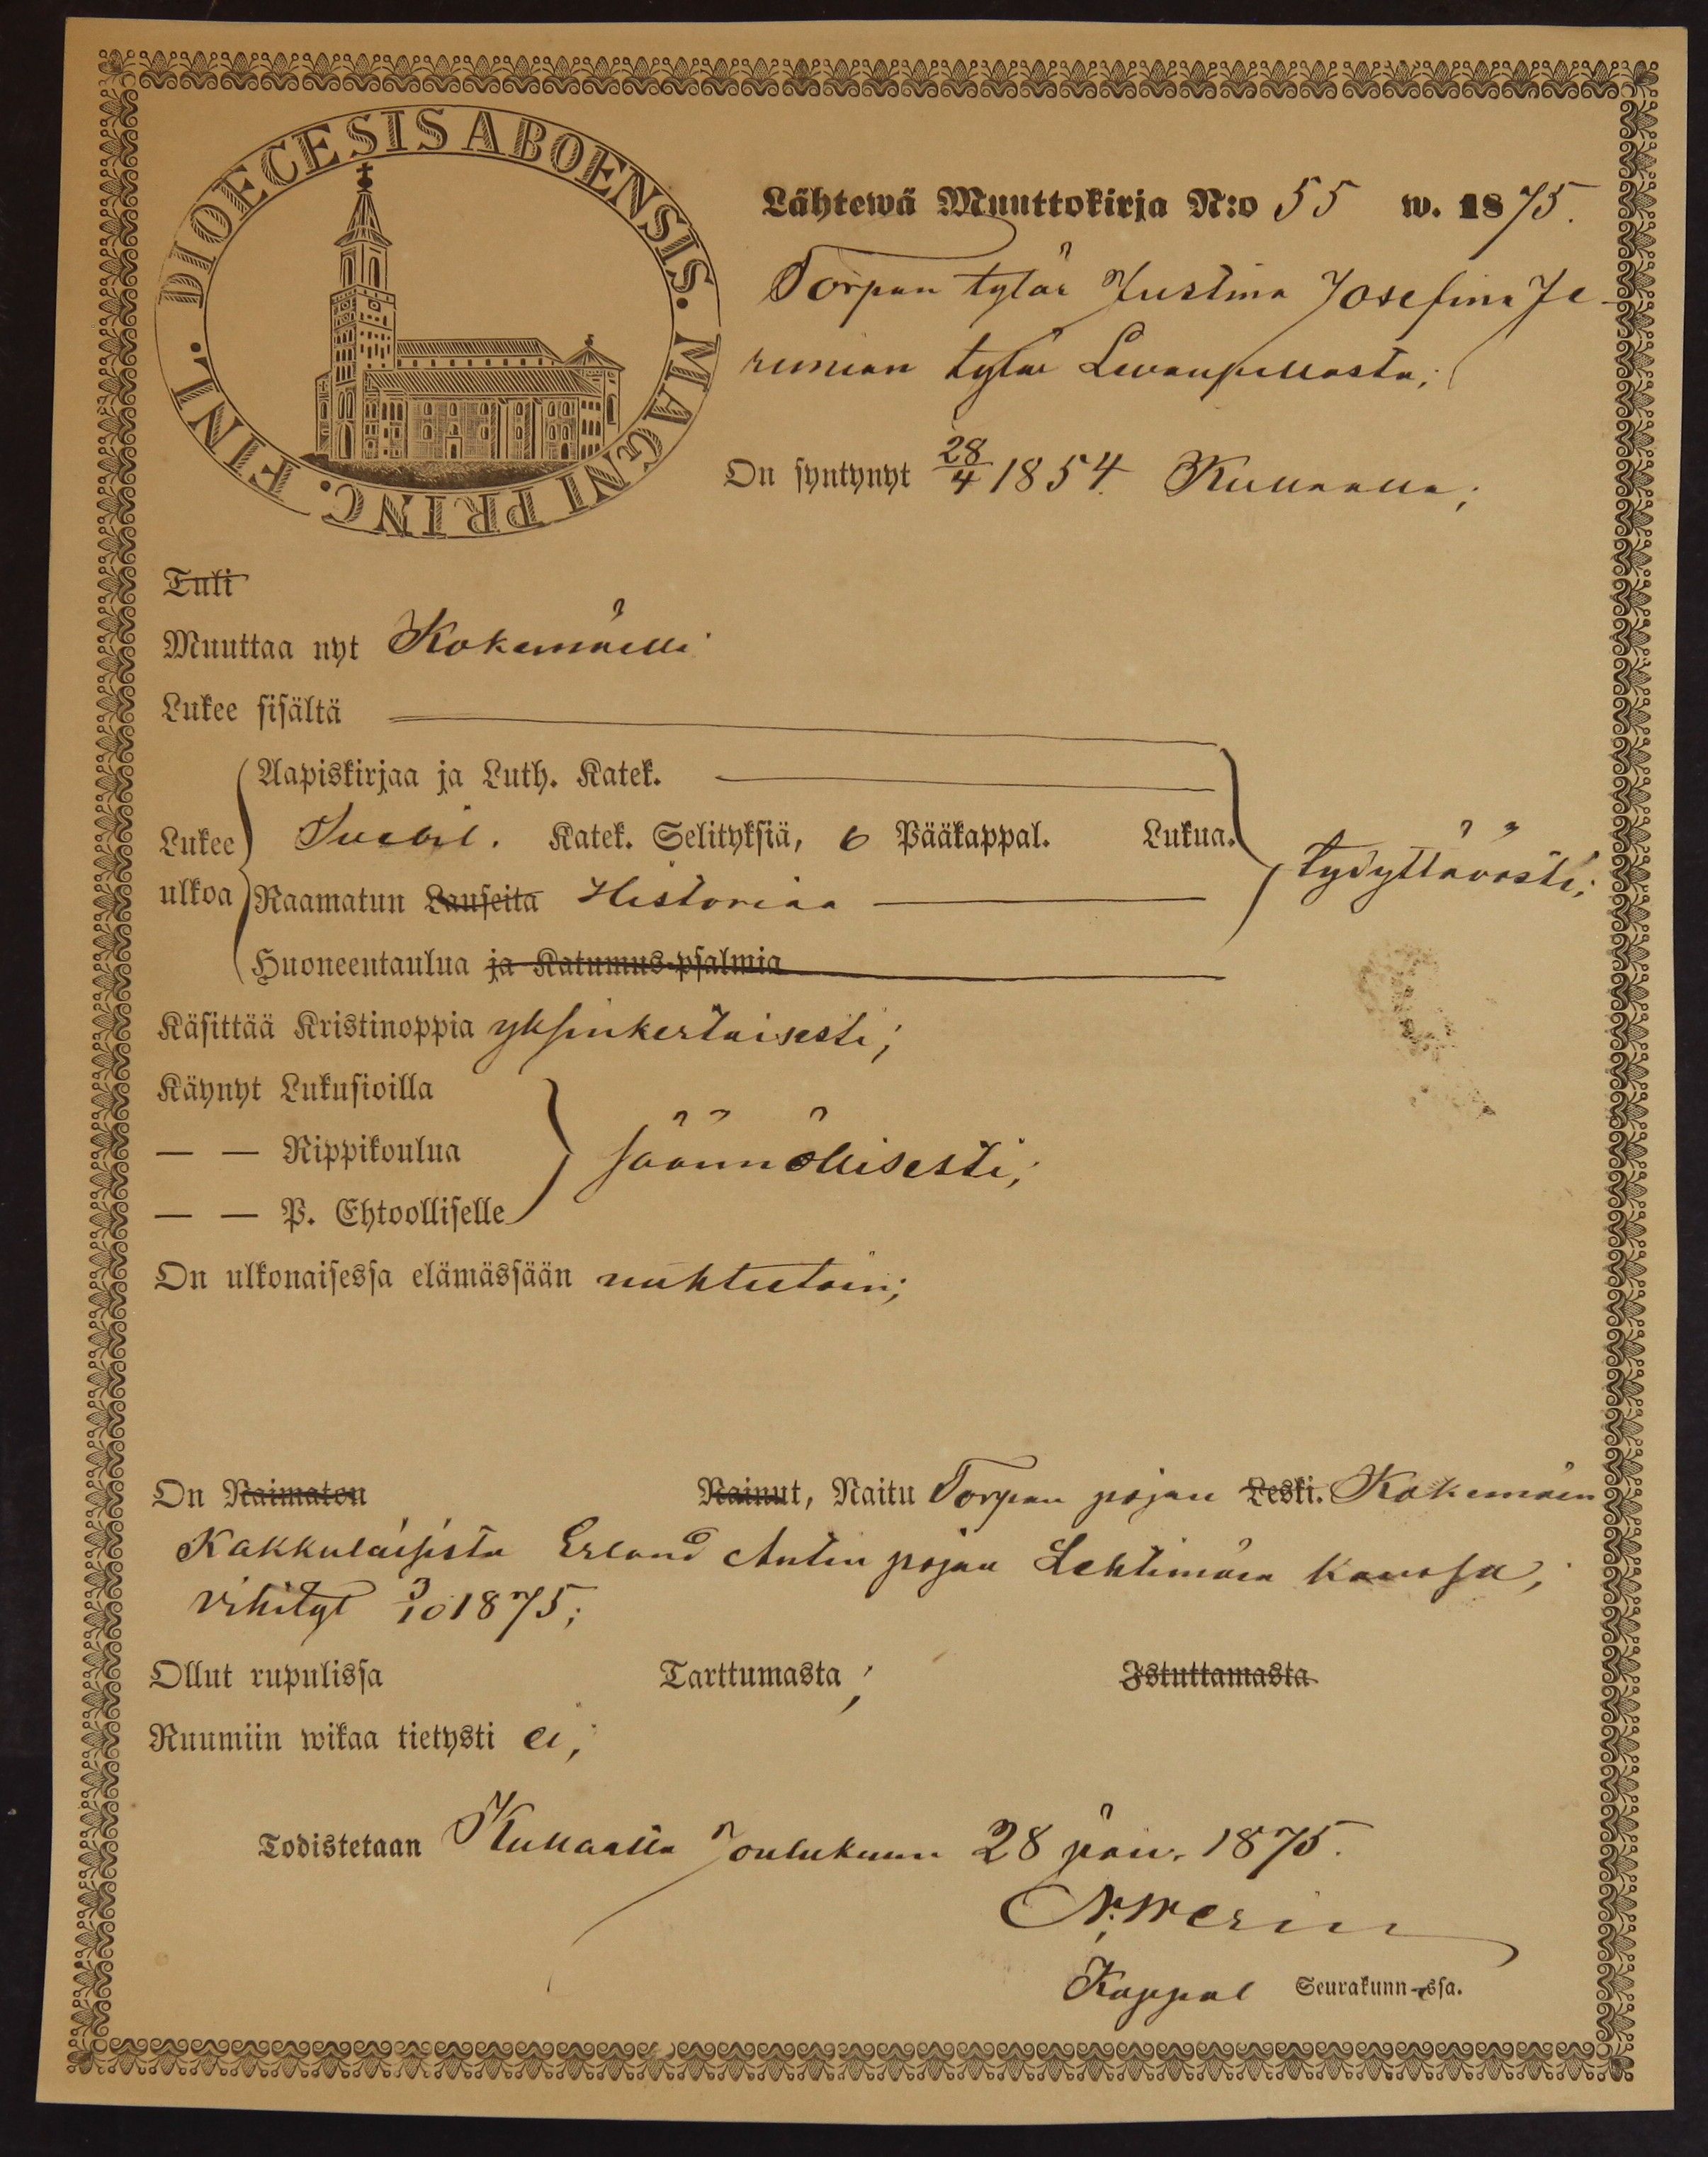 DIOECESIS ABOENSIS. MAGNI PRINC. FINL.
Lähtewä Muuttokirja N:o 55 w. 1875.
Torpan tytär Justina Josefina Je-
remian tytär Levanpellosta;
On syntynyt 28/4 1854 Kullaalla;
Tuli
Muuttaa nyt Kokemäelle
Lukee sisältä
Aapiskirjaa ja Luth. Katek.
Lukee ulkoa
Svebil. Katek. Selityksiä, 6 Pääkappal. Lukua.
tydyttävästi;
Raamatun Lauseita Historiaa
Huoneentaulua ja Katumus-psalmia
Käsittää Kristinoppia yksinkertaisesti;
Käynyt Lukusioilla
— — Rippikoulua säännöllisesti;
— — P. Ehtoolliselle
On ulkonaisessa elämässään nuhteetoin;
On Naimaton Nainut, Naitu Torpan pojan Leski. Kokemäen
Kakkulaisista Erland Antin pojan Lehtimäen kanssa;
vihityt 3/10 1875;
Ollut rupulissa Tarttumasta; Istuttamasta
Ruumiin wikaa tietysti ei;
Todistetaan Kullaalla Joulukuun 28 päiv. 1875.
Kappal Seurakunn-ssa.